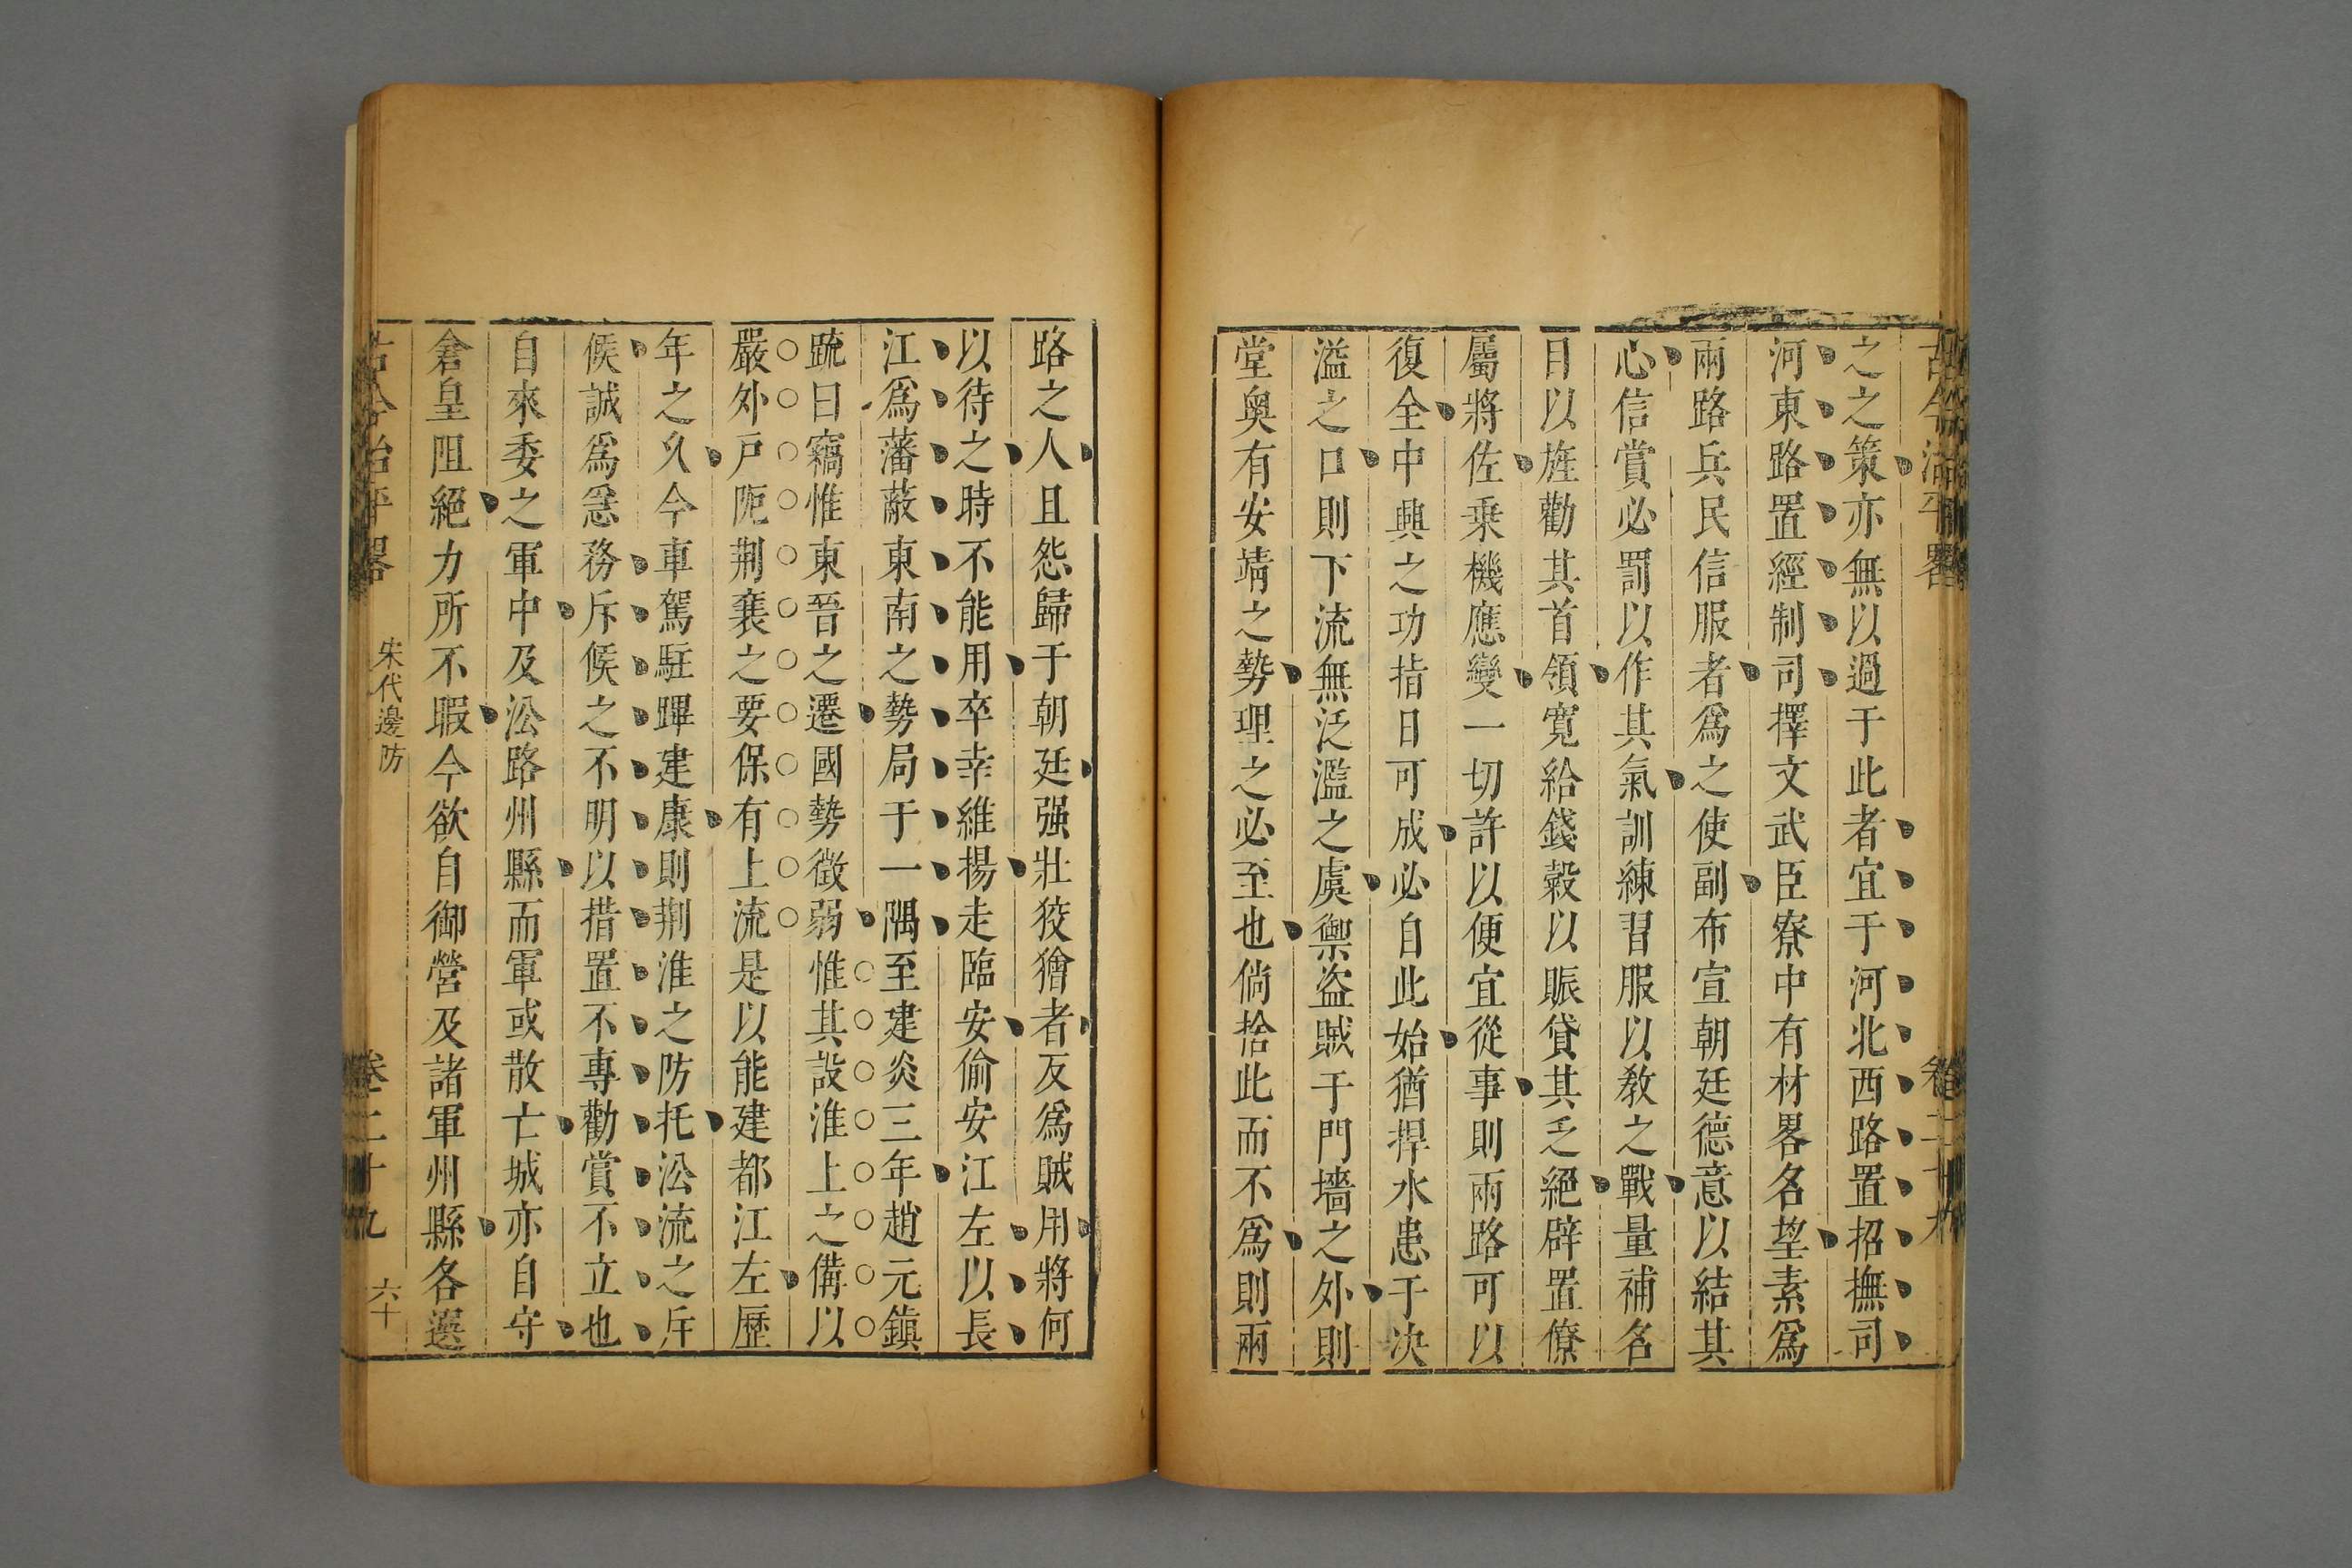 古今治平畧
卷二十九
之之策亦無以過于此者宜于河北西路置招撫司
河東路置經制司擇文武臣寮中有材畧名望素爲
兩路兵民信服者爲之使副布宣朝廷德意以結其
心信賞必罰以作其氣訓練習服以教之戰量補名
目以旌勸其首領寛給錢穀以賑貸其乏絕辟置僚
屬將佐乗機應變一切許以便宜從事則兩路可以
復全中興之功指日可成必自此始猶捍水患于决
溢之口則下流無泛濫之虞禦盗賊于門墻之外則
堂奥有安靖之勢理之必至也倘捨此而不爲則兩
路之人且怨歸于朝廷强壯狡獪者反爲賊用將何
以待之時不能用卒幸維揚走臨安偷安江左以長
江爲藩蔽東南之勢局于一隅至建炎三年趙元鎮
䟽曰竊惟東晉之遷國勢微弱惟其設淮上之備以
嚴外戸阨荆襄之要保有上流是以能建都江左歷
年之久今車駕駐蹕建康則荆淮之防托㳂流之斥
候誠爲急務斥候之不明以措置不專勸賞不立也
自來委之軍中及㳂路州縣而軍或散亡城亦自守
倉皇阻絕力所不暇今欲自御營及諸軍州縣各選
古今治平畧
宋代邊防
卷二十九
六十